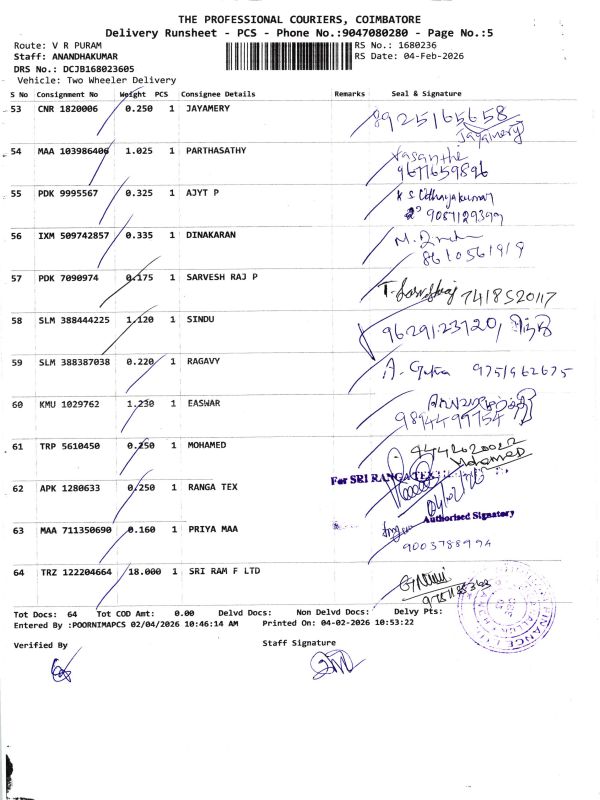 THE PROFESSIONAL COURIERS, COIMBATORE
Delivery Runsheet - PCS - Phone No.:9047080280 - Page No.:5
Route: V R PURAM
RS No.: 1680236
Staff: ANANDHAKUMAR
RS Date: 04-Feb-2026
DRS No.: DCJB168023605
Vehicle: Two Wheeler Delivery
S No Consignment No Weight PCS Consignee Details Remarks Seal & Signature
53 CNR 1820006 0.250 1 JAYAMERY 8925165658
Jayamery
54 MAA 103986406 1.025 1 PARTHASATHY Vasanthi
9677659896
55 PDK 9995567 0.325 1 AJYT P K S Udhayakumar
9087129399
56 IXM 509742857 0.335 1 DINAKARAN
8610561919
57 PDK 7090974 0.175 1 SARVESH RAJ P 7418520117
58 SLM 388444225 1.120 1 SINDU 9629123720,
59 SLM 388387038 0.220 1 RAGAVY A. Geetha 9751962675
60 KMU 1029762 1.230 1 EASWAR
9894499754
61 TRP 5610450 0.250 1 MOHAMED 9442620022
Mohamed
For SRI RANGA TEX
62 APK 1280633 0.250 1 RANGA TEX
Authorised Signatory
63 MAA 711350690 0.160 1 PRIYA MAA
9003788994
64 TRZ 122204664 18.000 1 SRI RAM F LTD
Tot Docs: 64 Tot COD Amt: 0.00 Delvd Docs: Non Delvd Docs: Delvy Pts:
Entered By :POORNIMAPCS 02/04/2026 10:46:14 AM Printed On: 04-02-2026 10:53:22
Verified By Staff Signature